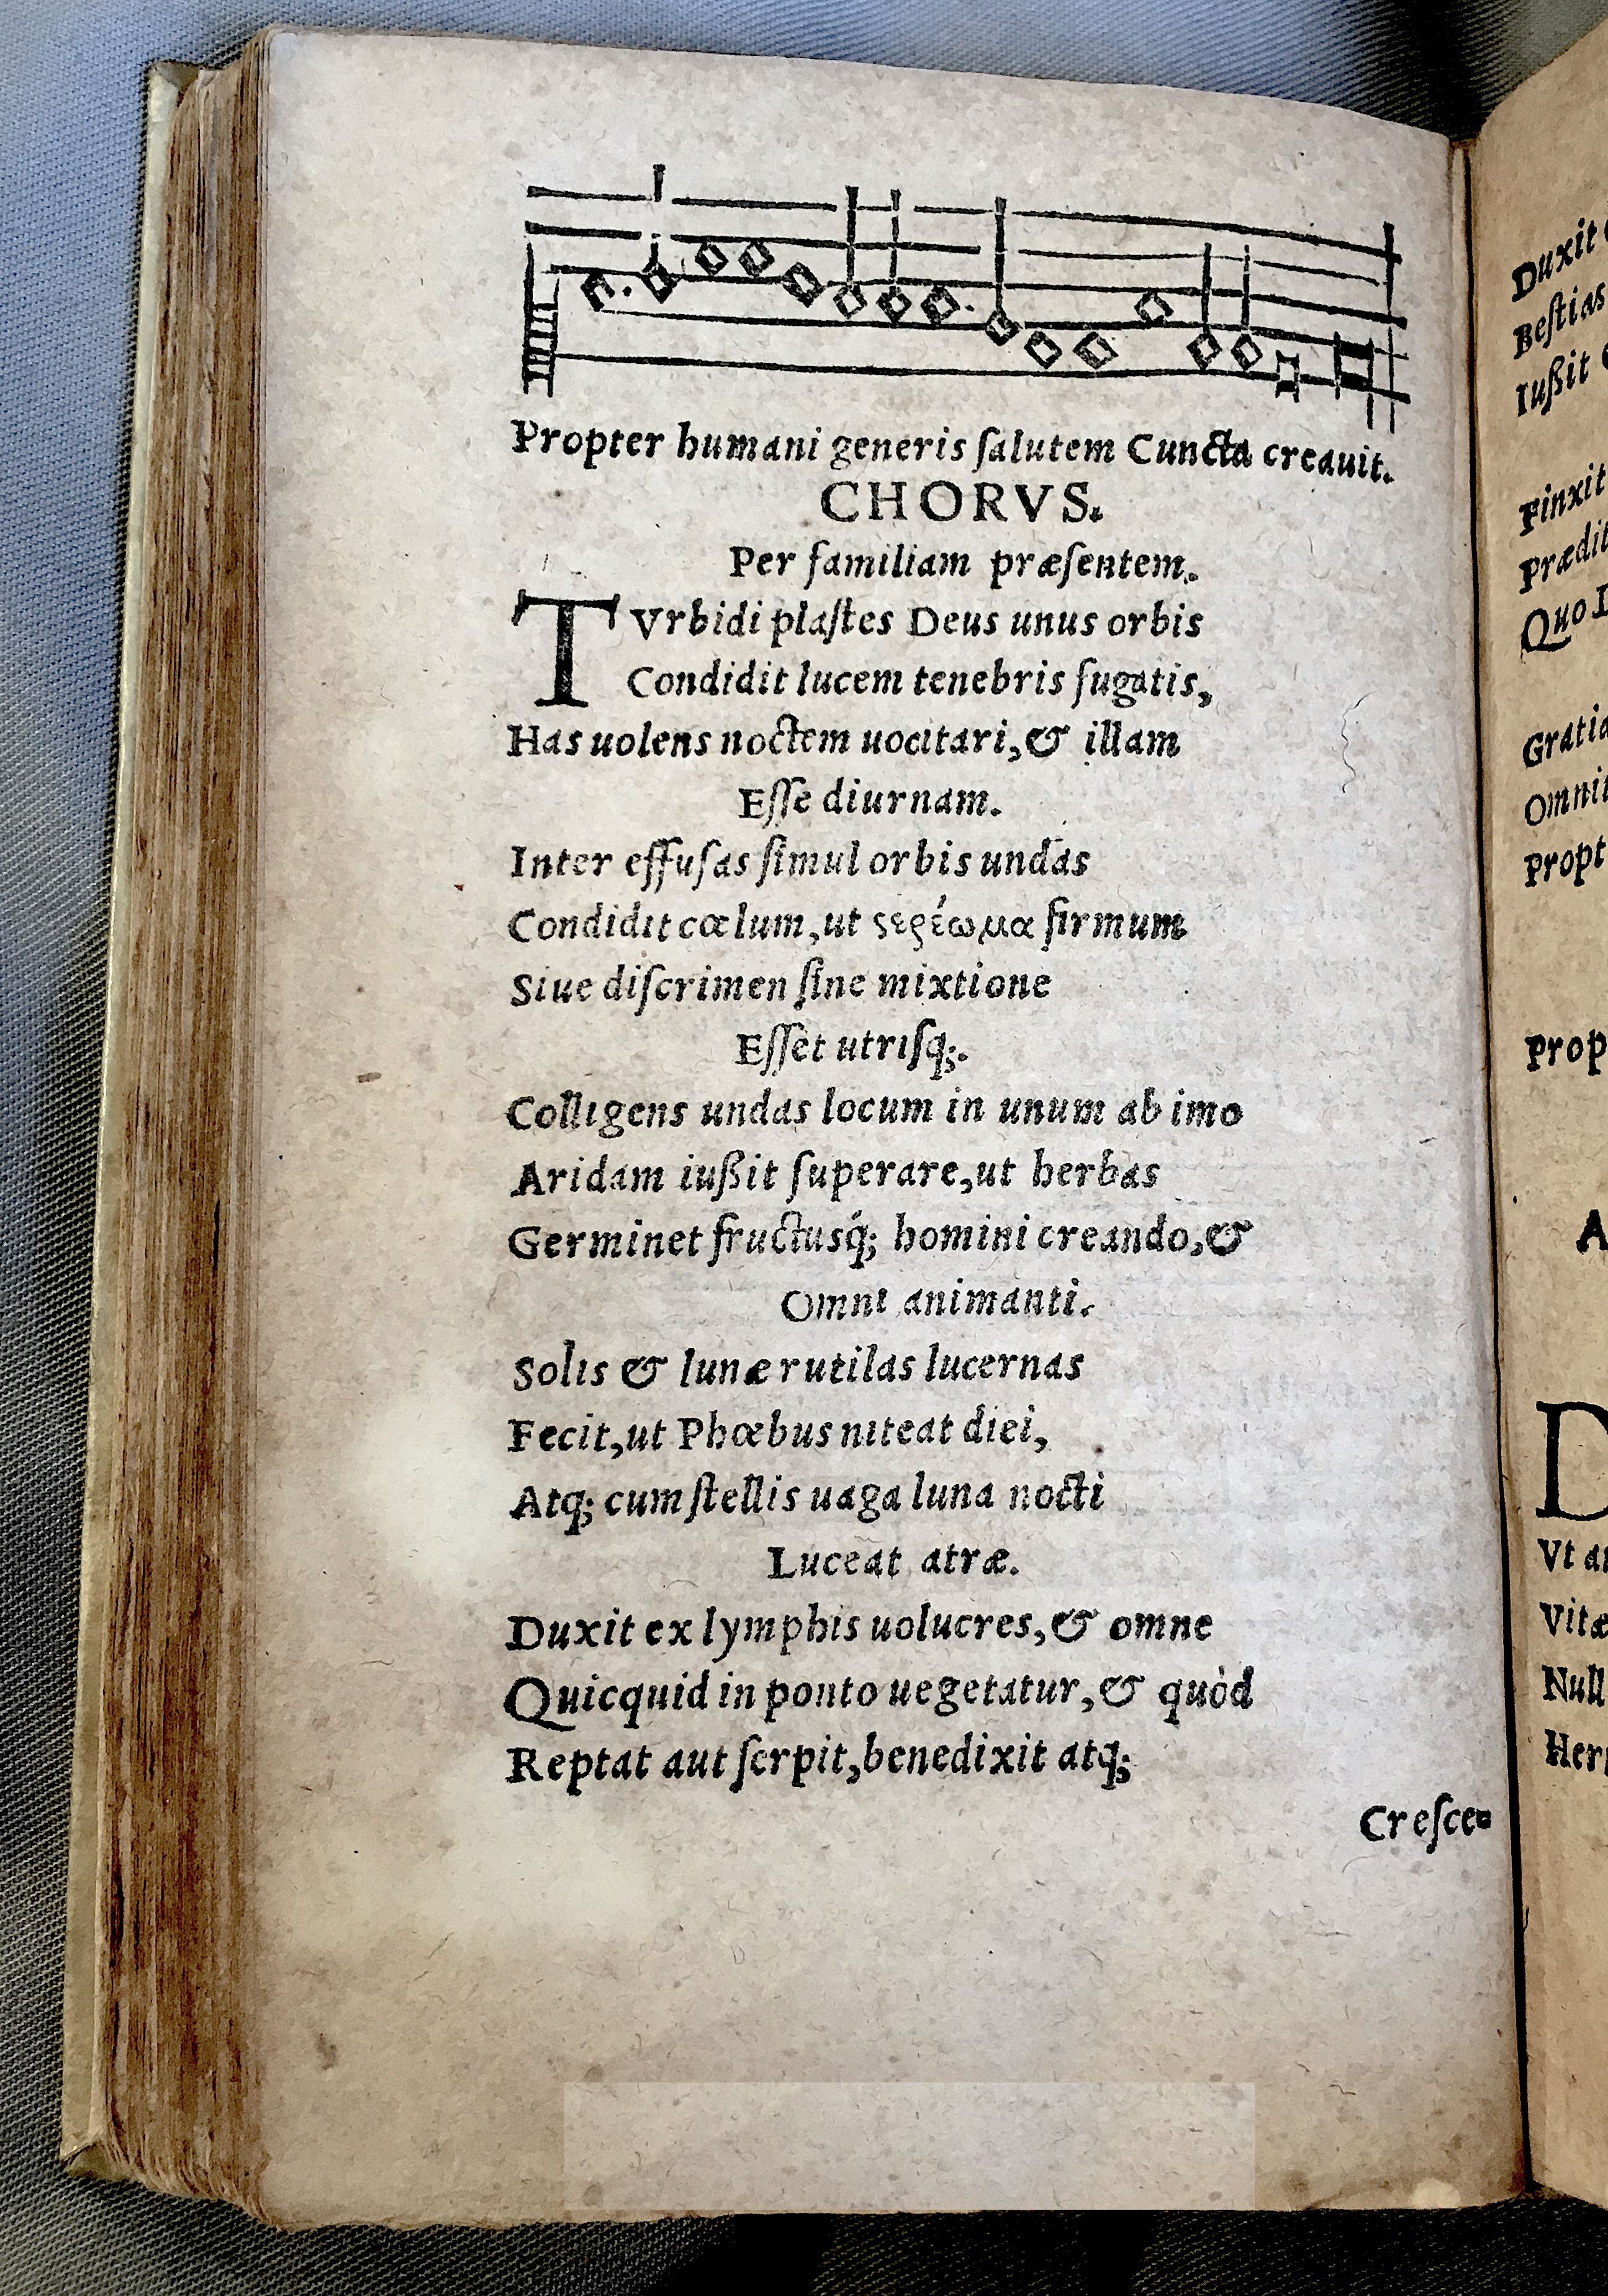 Propter humani generis ſalutem Cuncta creauit.
CHORVS.
Per familiam præſentem.
TVrbidi plaſtes Deus unus orbis
Condidit lucem tenebris fugatis,
Has uolens noctem uocitari,& illam
Eſſe diurnam.
Inter effuſas ſimul orbis undas
Condidit cœlum,ut ςερέωμα firmum
Siue diſcrimen ſine mixtione
Eſſet utriſq;.
Colligens undas locum in unum ab imo
Aridam iußit ſuperare,ut herbas
Germinet fructusq́; homini creando,&
Omni animanti.
Solis & lunæ rutilas lucernas
Fecit,ut Phœbus niteat diei,
Atq; cum ſtellis uaga luna nocti
Luceat atræ.
Duxit ex lymphis uolucres,& omne
Quicquid in ponto uegetatur,& quòd
Reptat aut ſerpit,benedixit atq;
Creſce-
Duxit
Beſtias
Iußit
Finxit
Prædit
Quo
Gratia
Omni
Propt
Prop
A
D
Vt
Vitæ
Null
Her